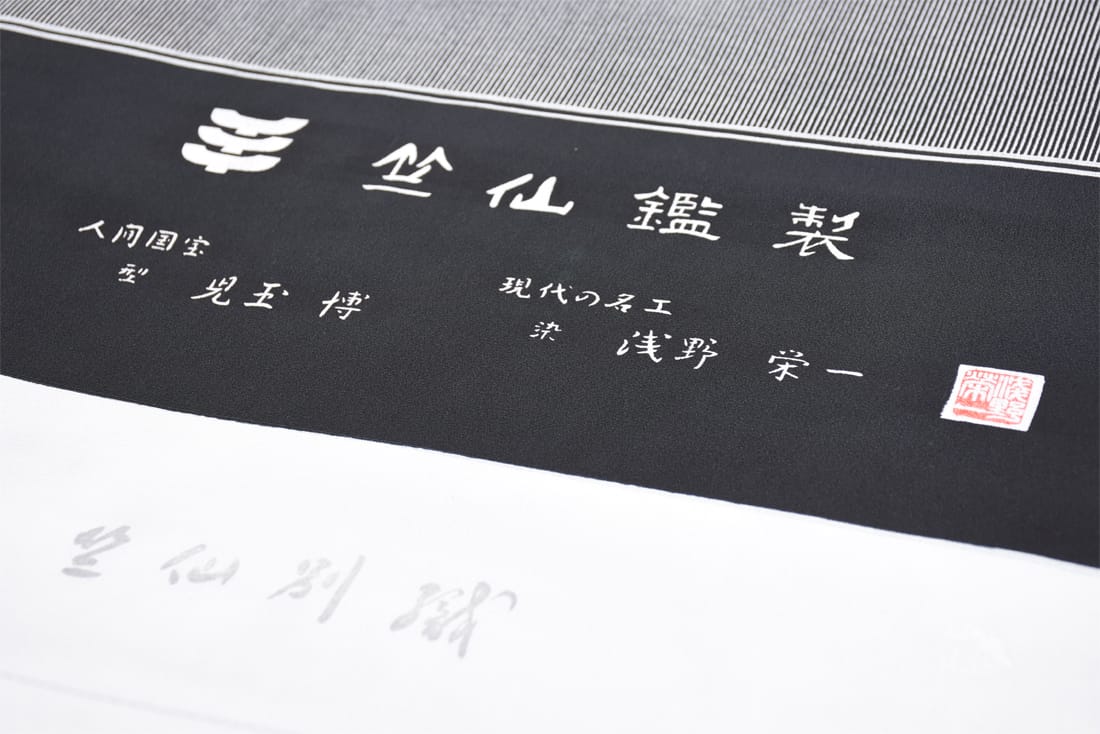 竺仙鑑製
人間国宝
型 児玉 博
現代の名工
染 浅野 栄一
浅野
栄一
竺仙別織